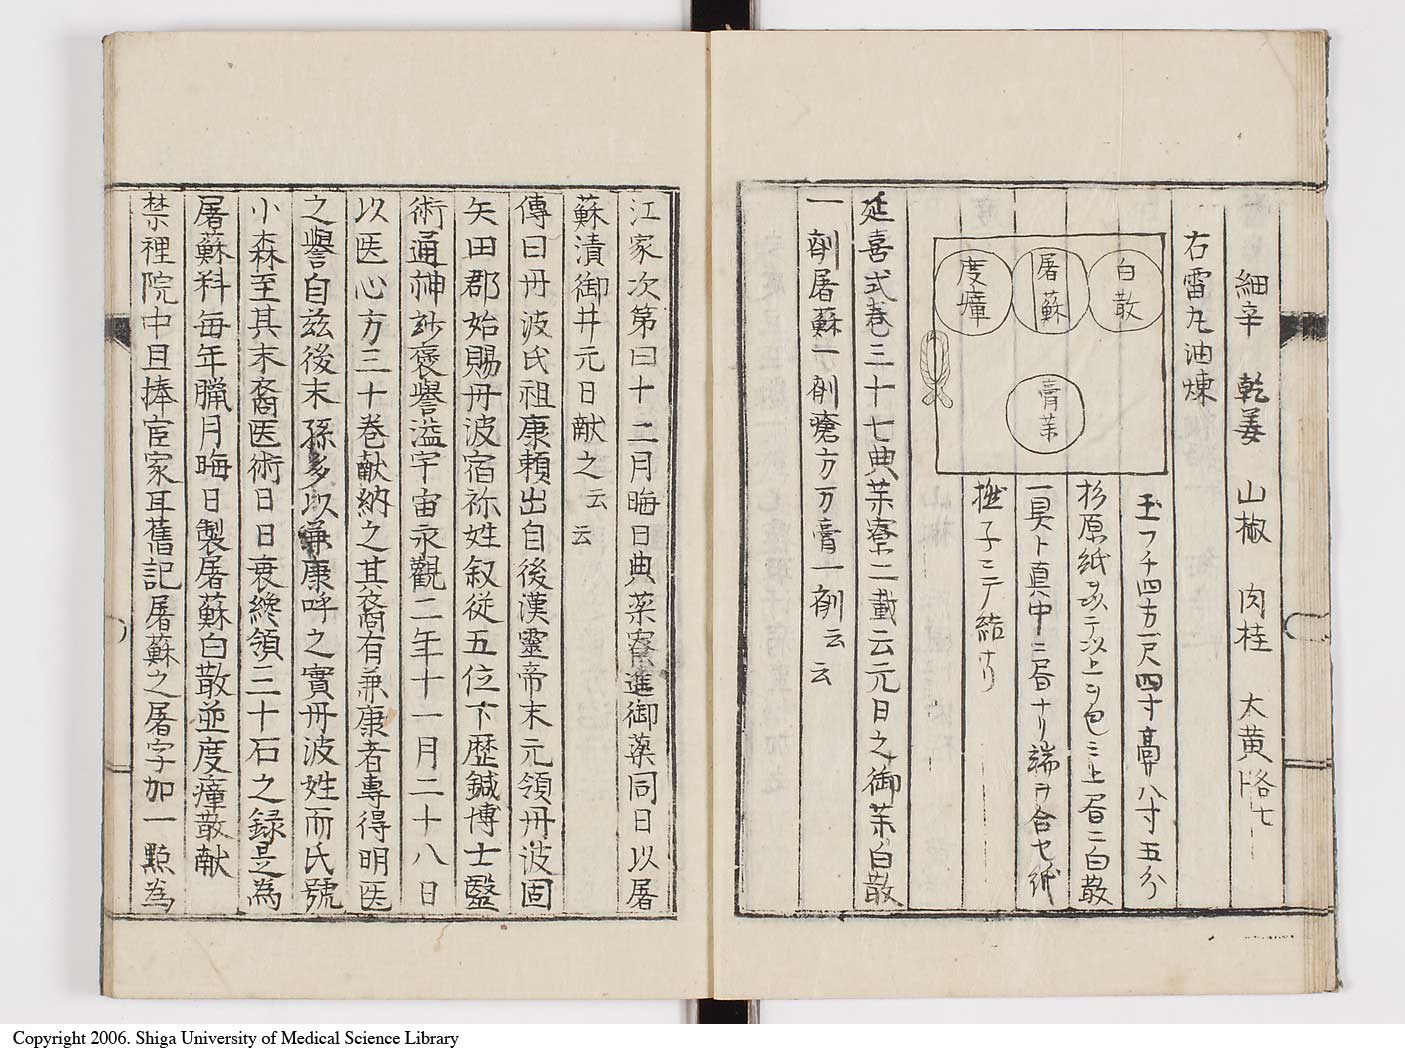 細辛 乾姜 山椒 肉桂 大黄
右雷丸油煉
白散
屠蘇
度瘴
膏薬
四方一尺四寸 八寸五分
杉原紙 以上ヲ包ミ上昏ニ白散
真中ニ昏ナリ端ヲ合セ紙
撚子ニテ結ナリ
延喜式巻三十七典薬寮ニ載云元日之御薬白散
一剤屠蘇一剤 膏一剤云云
江家次第曰十二月晦日典薬寮進御薬同日以屠
蘇漬御井元日献之云云
傳曰丹波氏祖康頼出自後漢靈帝末元領丹波國
矢田郡始賜丹波宿祢姓叙従五位下歴鍼博士醫
術通神妙褒譽溢宇宙永觀二年十一月二十八日
以医心方三十巻献納之其裔有兼康者專得明医
之譽自茲後末孫多以兼康呼之實丹波姓而氏號
小森至其末裔医術日日衰纔領三十石之録是為
屠蘇科毎年臘月晦日製屠蘇白散並度瘴散献
禁裡院中且捧宦家耳舊記屠蘇之屠字加一點為
Copyright 2006. Shiga University of Medical Science Library